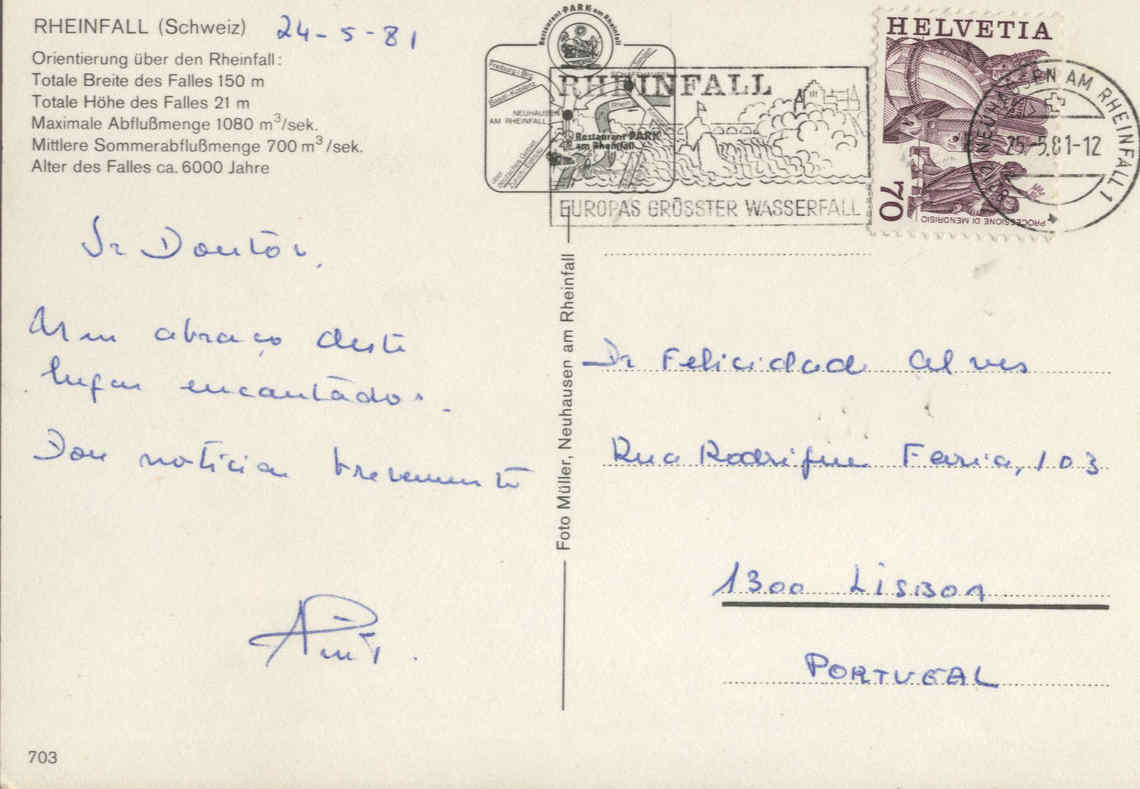 RHEINFALL (Schweiz) 24-5-81
Orientierung über den Rheinfall:
Totale Breite des Falles 150 m
Totale Höhe des Falles 21 m
Maximale Abflußmenge 1080 m³/sek.
Mittlere Sommerabflußmenge 700 m³/sek.
Alter des Falles ca. 6000 Jahre
Restaurant PARK am Rheinfall
NEUHAUSEN
AM RHEINFALL
Restaurant PARK
am Rheinfall
RHEINFALL
EUROPAS GRÖSSTER WASSERFALL
HELVETIA
70
PROCESSIONE DI MENDRISIO
NEUHAUSEN AM RHEINFALL 1
25.-5.81-12
Sr Doutor,
Um abraço deste
lugar encantador.
Dou notícias brevemente
Foto Müller, Neuhausen am Rheinfall
Dr Felicidade Alves
Rua Rodrigues Faria, 103
1300 LISBOA
PORTUGAL
703